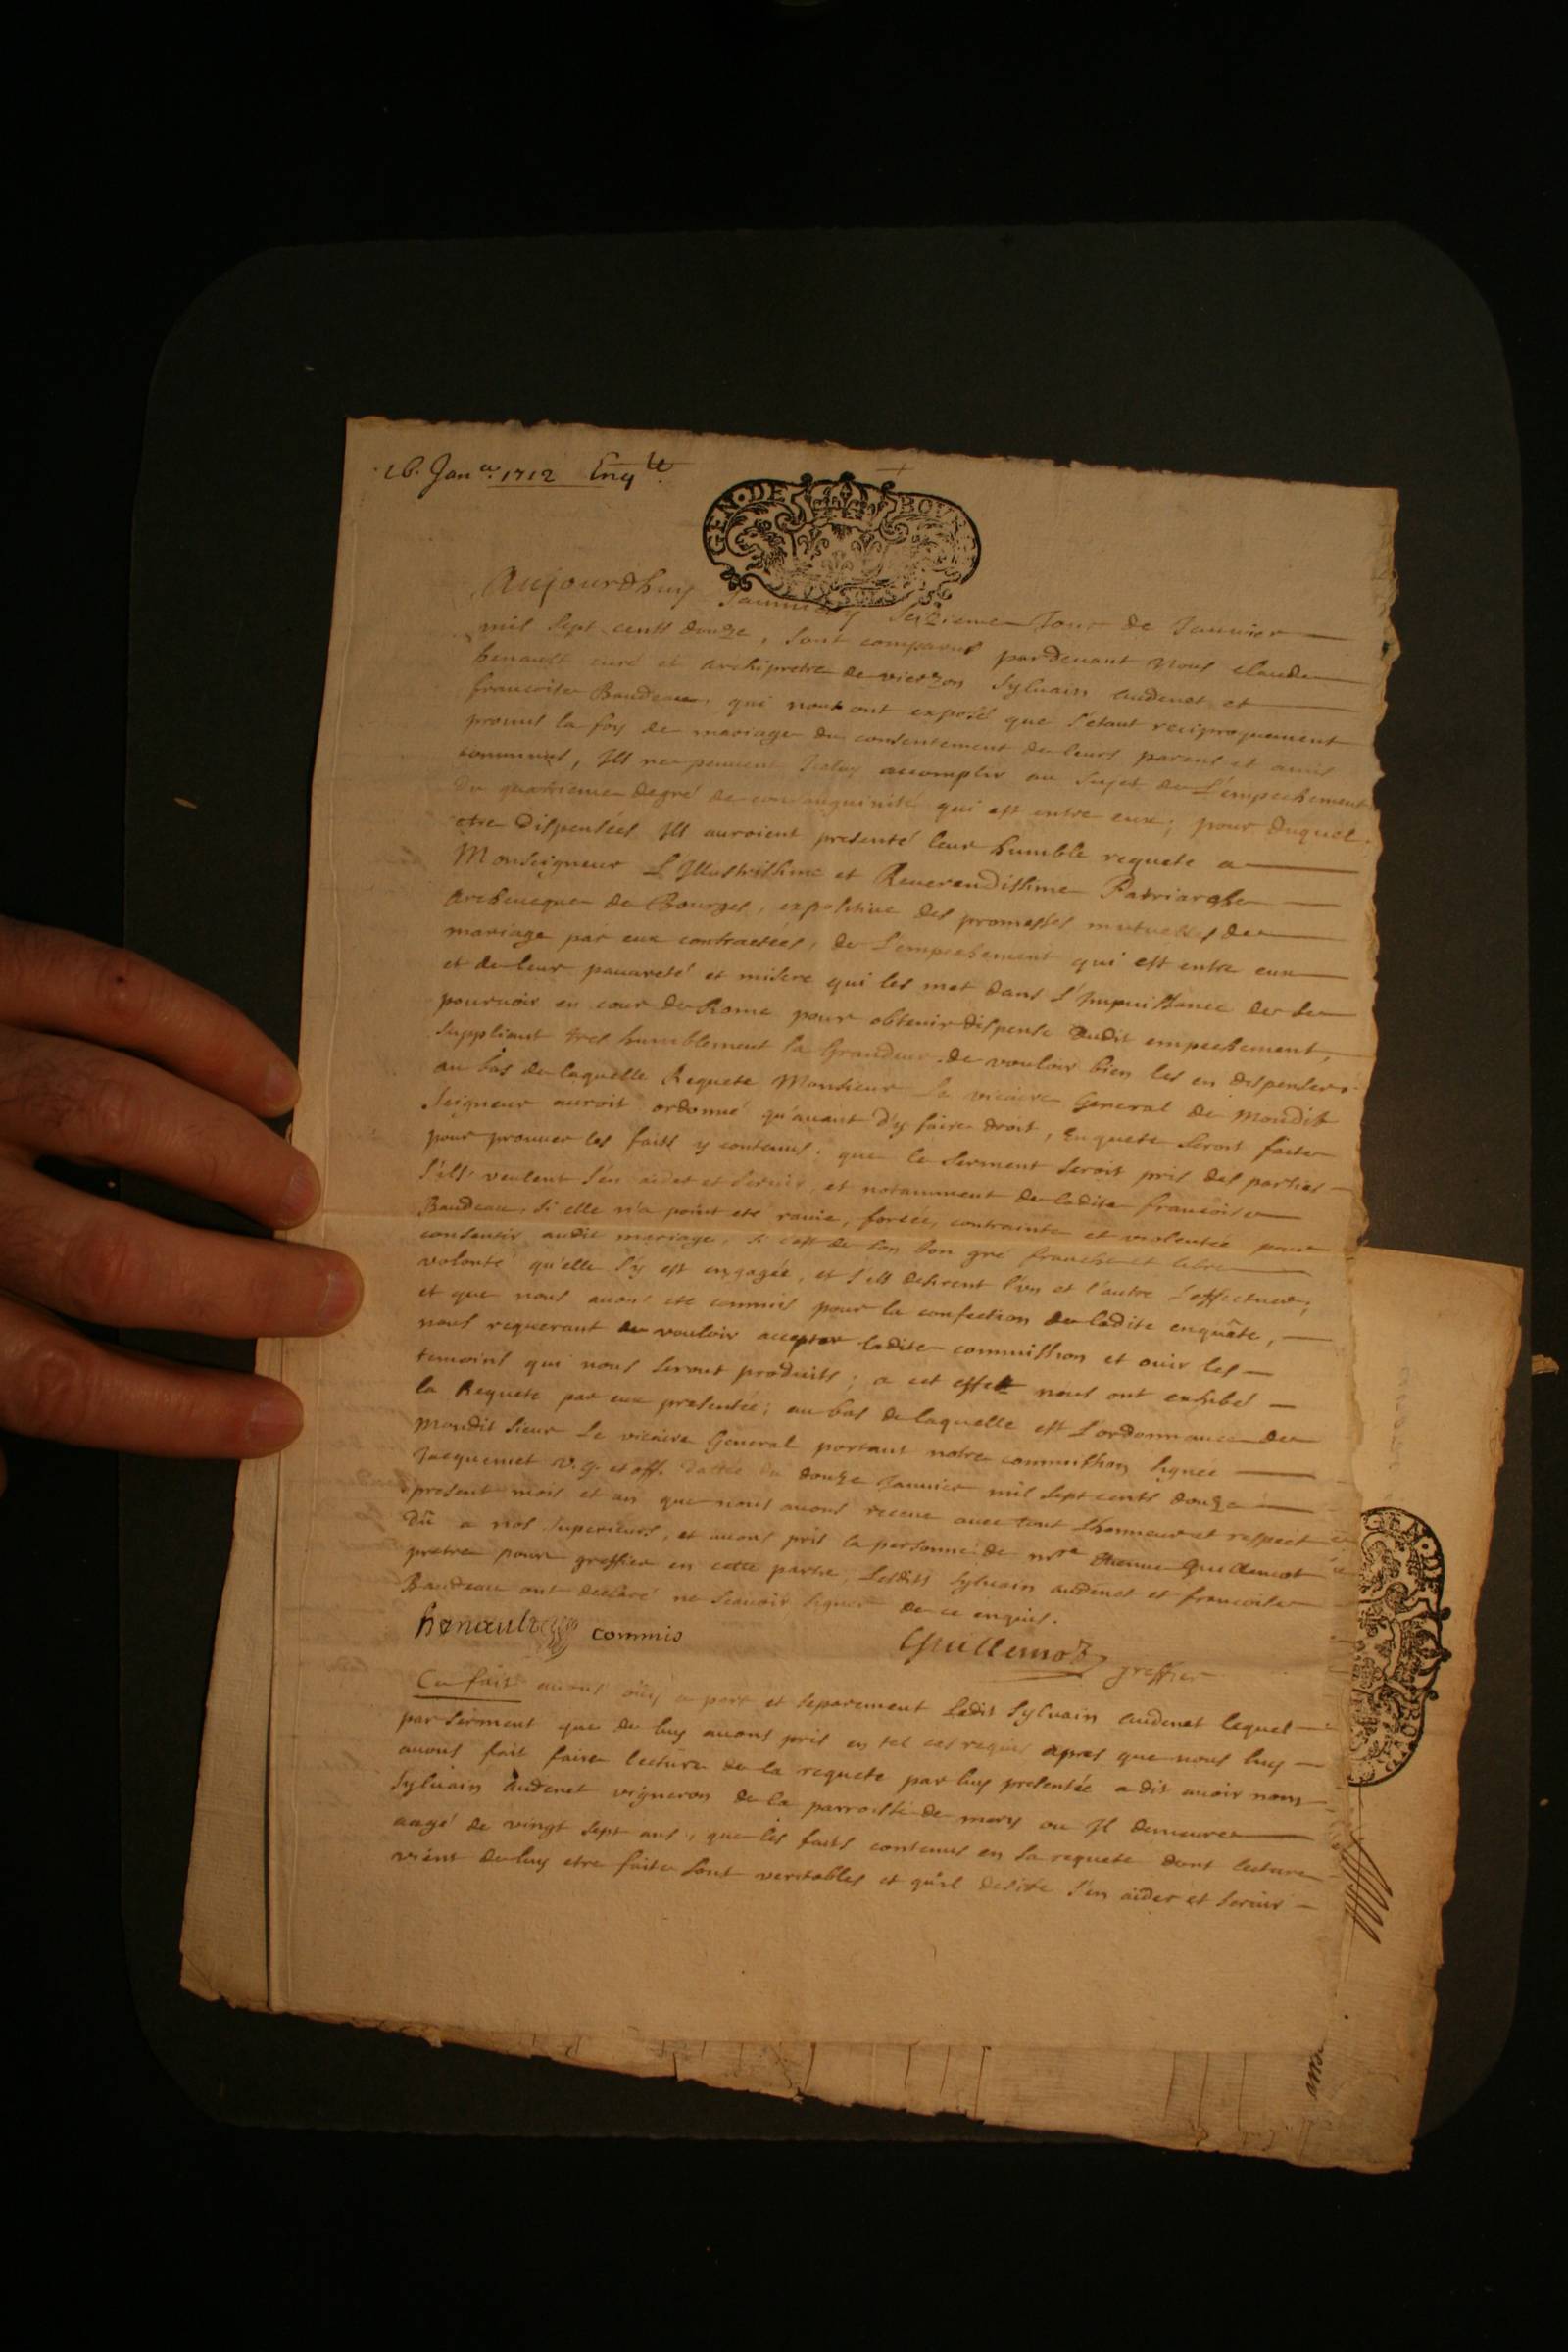 16. Jan.er 1712 Enqte.
GEN. DE BOUR
Aujourdhuy Sammedy Seizieme Jour de Janvier
mil Sept cents douze, Sont comparus pardevant Nous claude
henault curé et archipretre de vierzon Sylvain Audenet et
francoise Baudeau, qui nous ont exposé que s'étant reciproquement
promis la foy de mariage du consentement de leurs parens et amis
communs, Ils ne peuvent Iceluy accomplir au sujet de L'empechement
du quatrieme degré de consanguinité qui est entre eux; pour duquel
etre dispensées Ils auroient presenté leur humble requete a
Monseigneur L'Illustrissime et Reverendissime Patriarche
Archeveque de Bourges, expositive des promesses mutuelles de
mariage par eux contractées, de L'empechement qui est entre eux
et de leur pauvreté et misere qui les met dans L'Impuissance de se
pourvoir en cour de Rome pour obtenir dispense dudit empechement,
Suppliant tres humblement Sa Grandeur de vouloir bien les en dispenser.
au bas de laquelle Requete Monsieur Le vicaire General de Mondit
Seigneur auroit ordonné qu'avant d'y faire droit, Enquete seroit faite
pour prouver les faits y contenus; que le Serment Seroit pris des parties
s'ils veulent s'en aider et Servir, et notamment de ladite francoise
Baudeau, Si elle n'a point eté ravie, forcée, contrainte et violentée pour
consentir audit mariage, Si c'est de son bon gré franche et libre
volonté qu'elle s'y est engagée, et s'ils desirent l'un et l'autre L'effectuer;
et que nous avons eté commis pour la confection de ladite enquête,
nous requerant de vouloir accepter ladite commission et ouir les
temoins qui nous seront produits; a cet effet nous ont exhibé
la Requete par eux presentée; au bas de laquelle est L'ordonnance de
Mondit Sieur Le vicaire General portant notre commission Signée
Jacquemet v.g. et off. dattée du douze Janvier mil Sept cents douze
present mois et an que nous avons receue avec tout L'honneur et respect
dû a nos Superieurs, et avons pris la personne de mre Etienne Guillemot
pretre pour greffier en cette partie, Lesdits Sylvain audenet et francoise
Baudeau ont declaré ne Scavoir Signer de ce enquis.
henault commis Guillemot greffier
Ce fait avons oüy a part et separement Ledit Sylvain Audenet lequel
par Serment que de luy avons pris en tel cas requis apres que nous luy
avons fait faire lecture de la requete par luy presentée a dit avoir nom
Sylvain Audenet vigneron de la parroisse de mery ou Il demeure
aagé de vingt Sept ans, que les faits contenus en Sa requete dont lecture
vient de luy etre faite Sont veritables et qu'il desire S'en aider et Servir
GEN. DE BOUR